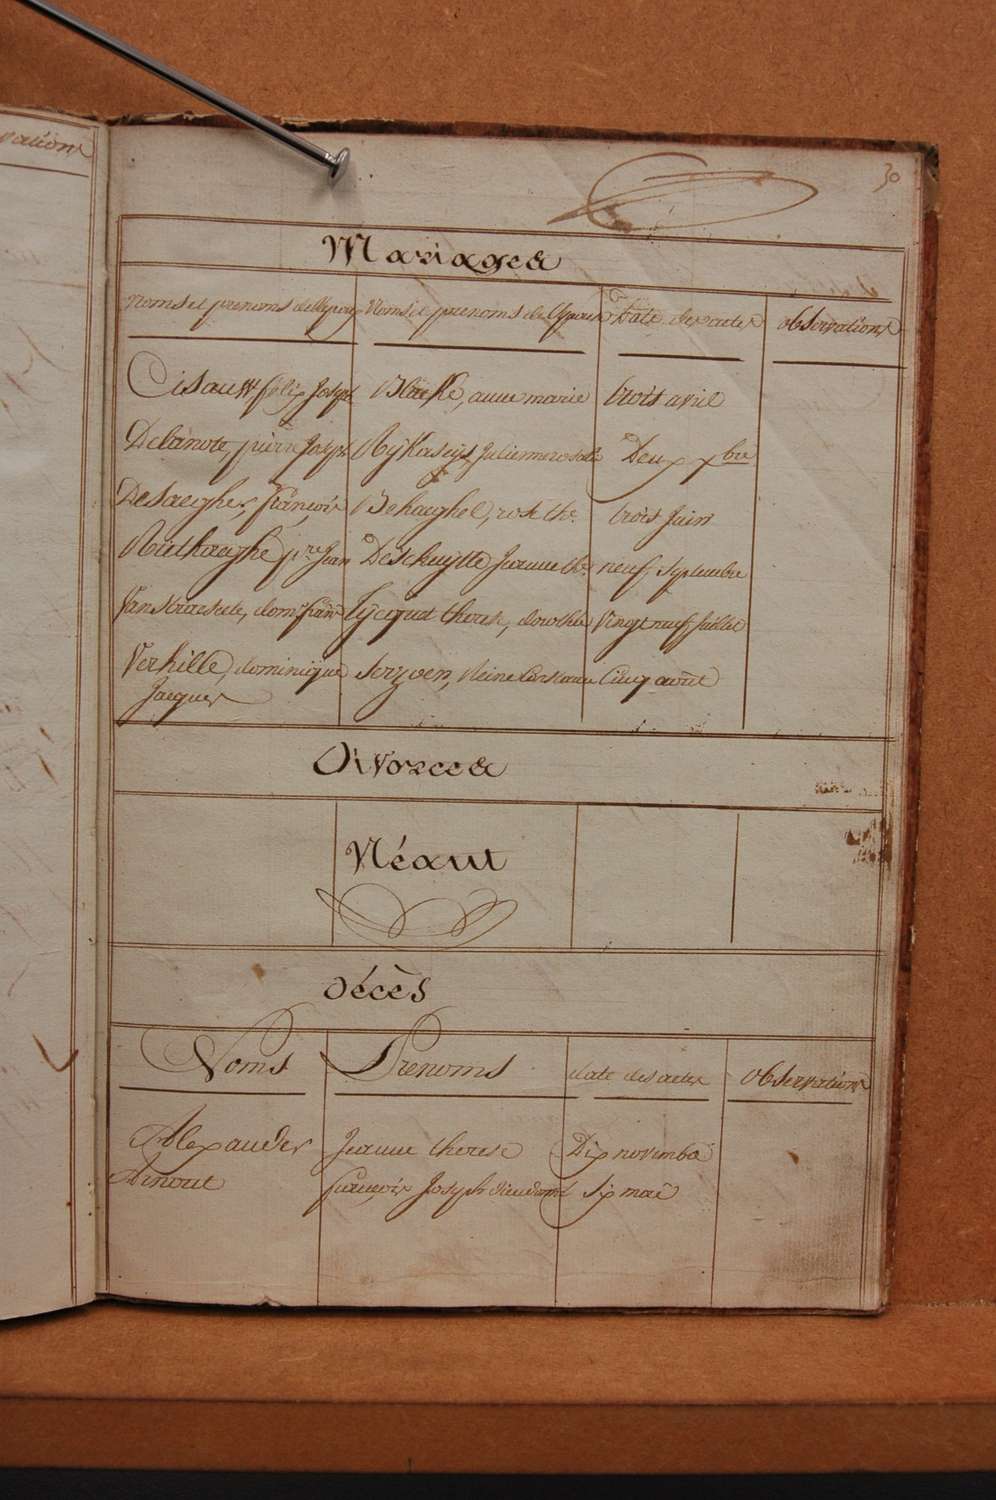 vations
30
Mariages
Noms et prenoms de l'Epoux Noms et prenoms de l'Epouse Date des actes observations
Cisauw felix Joseph Blaeke, anne marie trois avril
Delanote, pierre Joseph Rijkaseijs Julienne rosalie Deux xbre
Desaegher, françois Behaeghel, rose the. trois Juin
Ruthaeghe pre Jean Deschuytte Jeanne the. neuf septembre
Van Kraekete, domque fran Lycquat therese, dorothée Vingt neuf Juillet
Verhille, dominique Serzoen, Reine Constance Cinq août
Jacques
Divorces
Néant
Décès
Noms Prenoms date des actes observations
Alexander Jeanne therese Dix novembre
Arnout françois Joseph dieudonné six mai